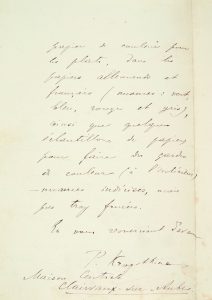 papier de couleur pour
les plats, dans les
papiers allemands et
français (nuances : vert,
bleu, rouge et gris),
ainsi que quelques
échantillons de papier
pour faire des gardes
de couleur (à l'intérieur)
— nuances indécises, mais
pas trop foncées.
En vous remerciant
P. Kropotkine
Maison Centrale
Clairvaux sur Aube